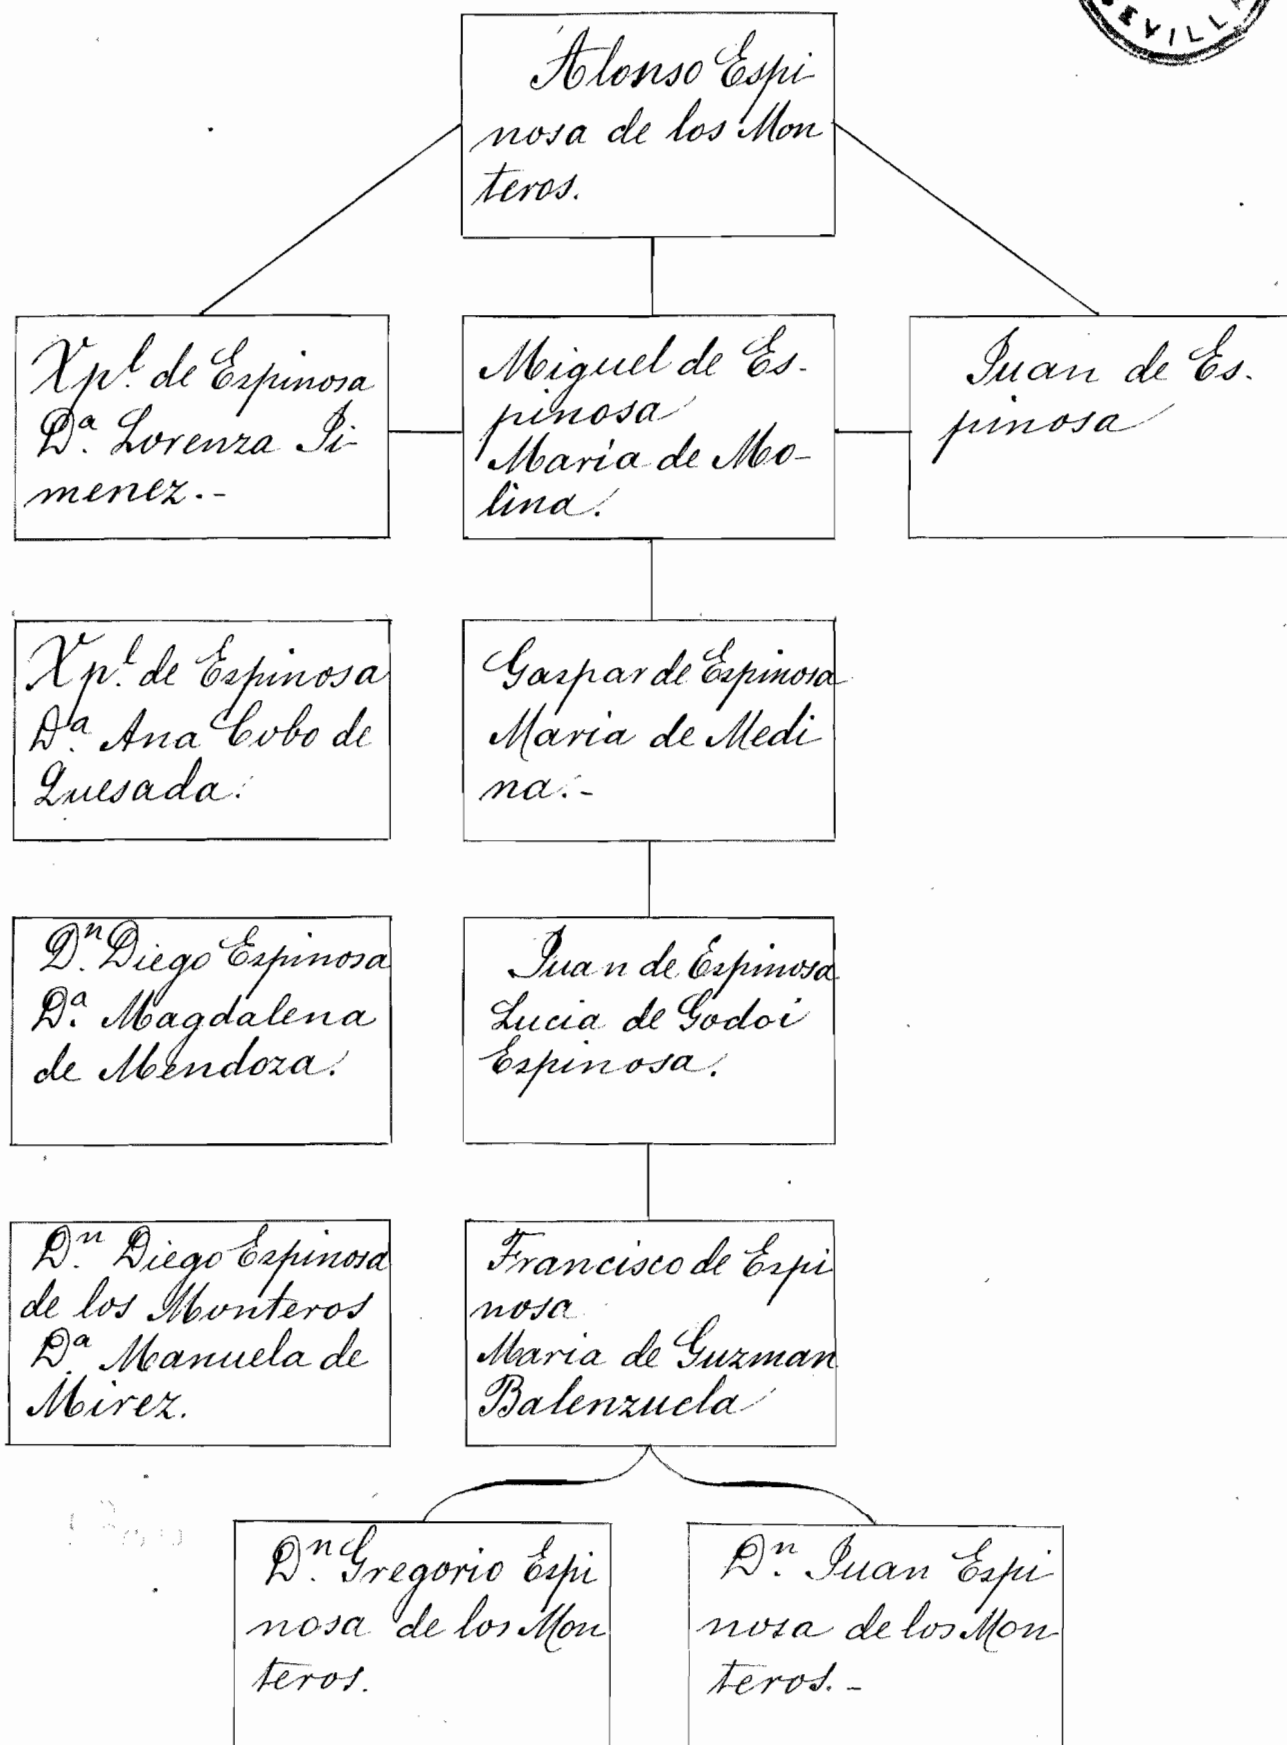 SEVILLA
Alonso Espi
nosa de los Mon
teros.
Xpl. de Espinosa
Dª. Lorenza Ji-
menez.-
Miguel de Es-
pinosa
María de Mo-
lina.
Juan de Es-
pinosa
Xpl. de Espinosa
Dª. Ana Cobo de
Quesada.
Gaspar de Espinosa
Maria de Medi
na.-
Dn. Diego Espinosa
Dª. Magdalena
de Mendoza.
Juan de Espinosa
Lucia de Godoi
Espinosa.
Dn. Diego Espinosa
de los Monteros
Dª. Manuela de
Mirez.
Francisco de Espi
nosa
Maria de Guzman
Balenzuela
Dn. Gregorio Espi
nosa de los Mon
teros.
Dn. Juan Espi
nosa de los Mon
teros.-